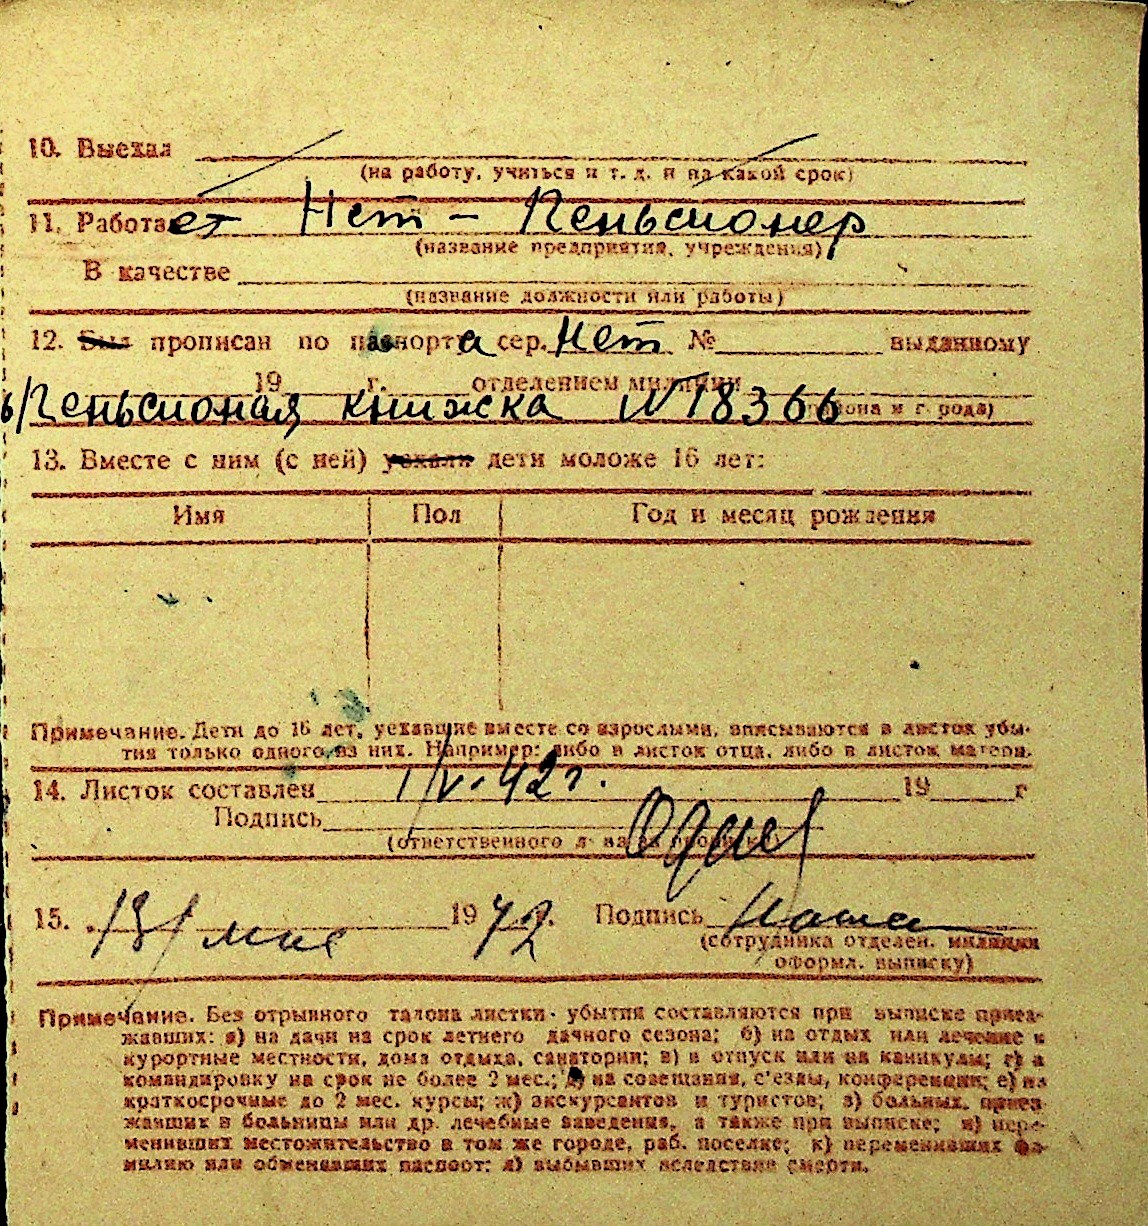 10. Выехал
(на работу, учиться и т. д. и на какой срок)
11. Работает Нет – Пеньсионер
(название предприятия, учреждения)
В качестве
(название должности или работы)
12. Был прописан по паспорта сер. Нет № выданному
19 г. отделением милиции
Пеньсионая книжка № 18366 района и г рода)
13. Вместе с ним (с ней) уехали дети моложе 16 лет:
Имя Пол Год и месяц рождения
Примечание. Дети до 16 лет, уехавшие вместе со взрослыми, вписываются в листок убы-
тия только одного из них. Например: либо в листок отца, либо в листок матери.
14. Листок составлен 1/V-42 г. 19 г
Подпись
(ответственного л на за прописку)
15. 13/ мая 1942 г. Подпись
(сотрудника отделен. милиции
оформл. выписку)
Примечание. Без отрывного талона листки убытия составляются при выписке приез-
жавших: а) на дачи на срок летнего дачного сезона; б) на отдых или лечение в
курортные местности, дома отдыха, санатории; в) в отпуск или на каникулы; г) в
командировку на срок не более 2 мес.; д) на совещания, с'езды, конференции; е) на
краткосрочные до 2 мес. курсы; ж) экскурсантов и туристов; з) больных, приез-
жавших в больницы или др. лечебные заведения, а также при выписке; и) пере-
менивших местожительство в том же городе, раб. поселке; к) переменивших фа-
милию или обменявших паспорт; л) выбывших вследствие смерти.